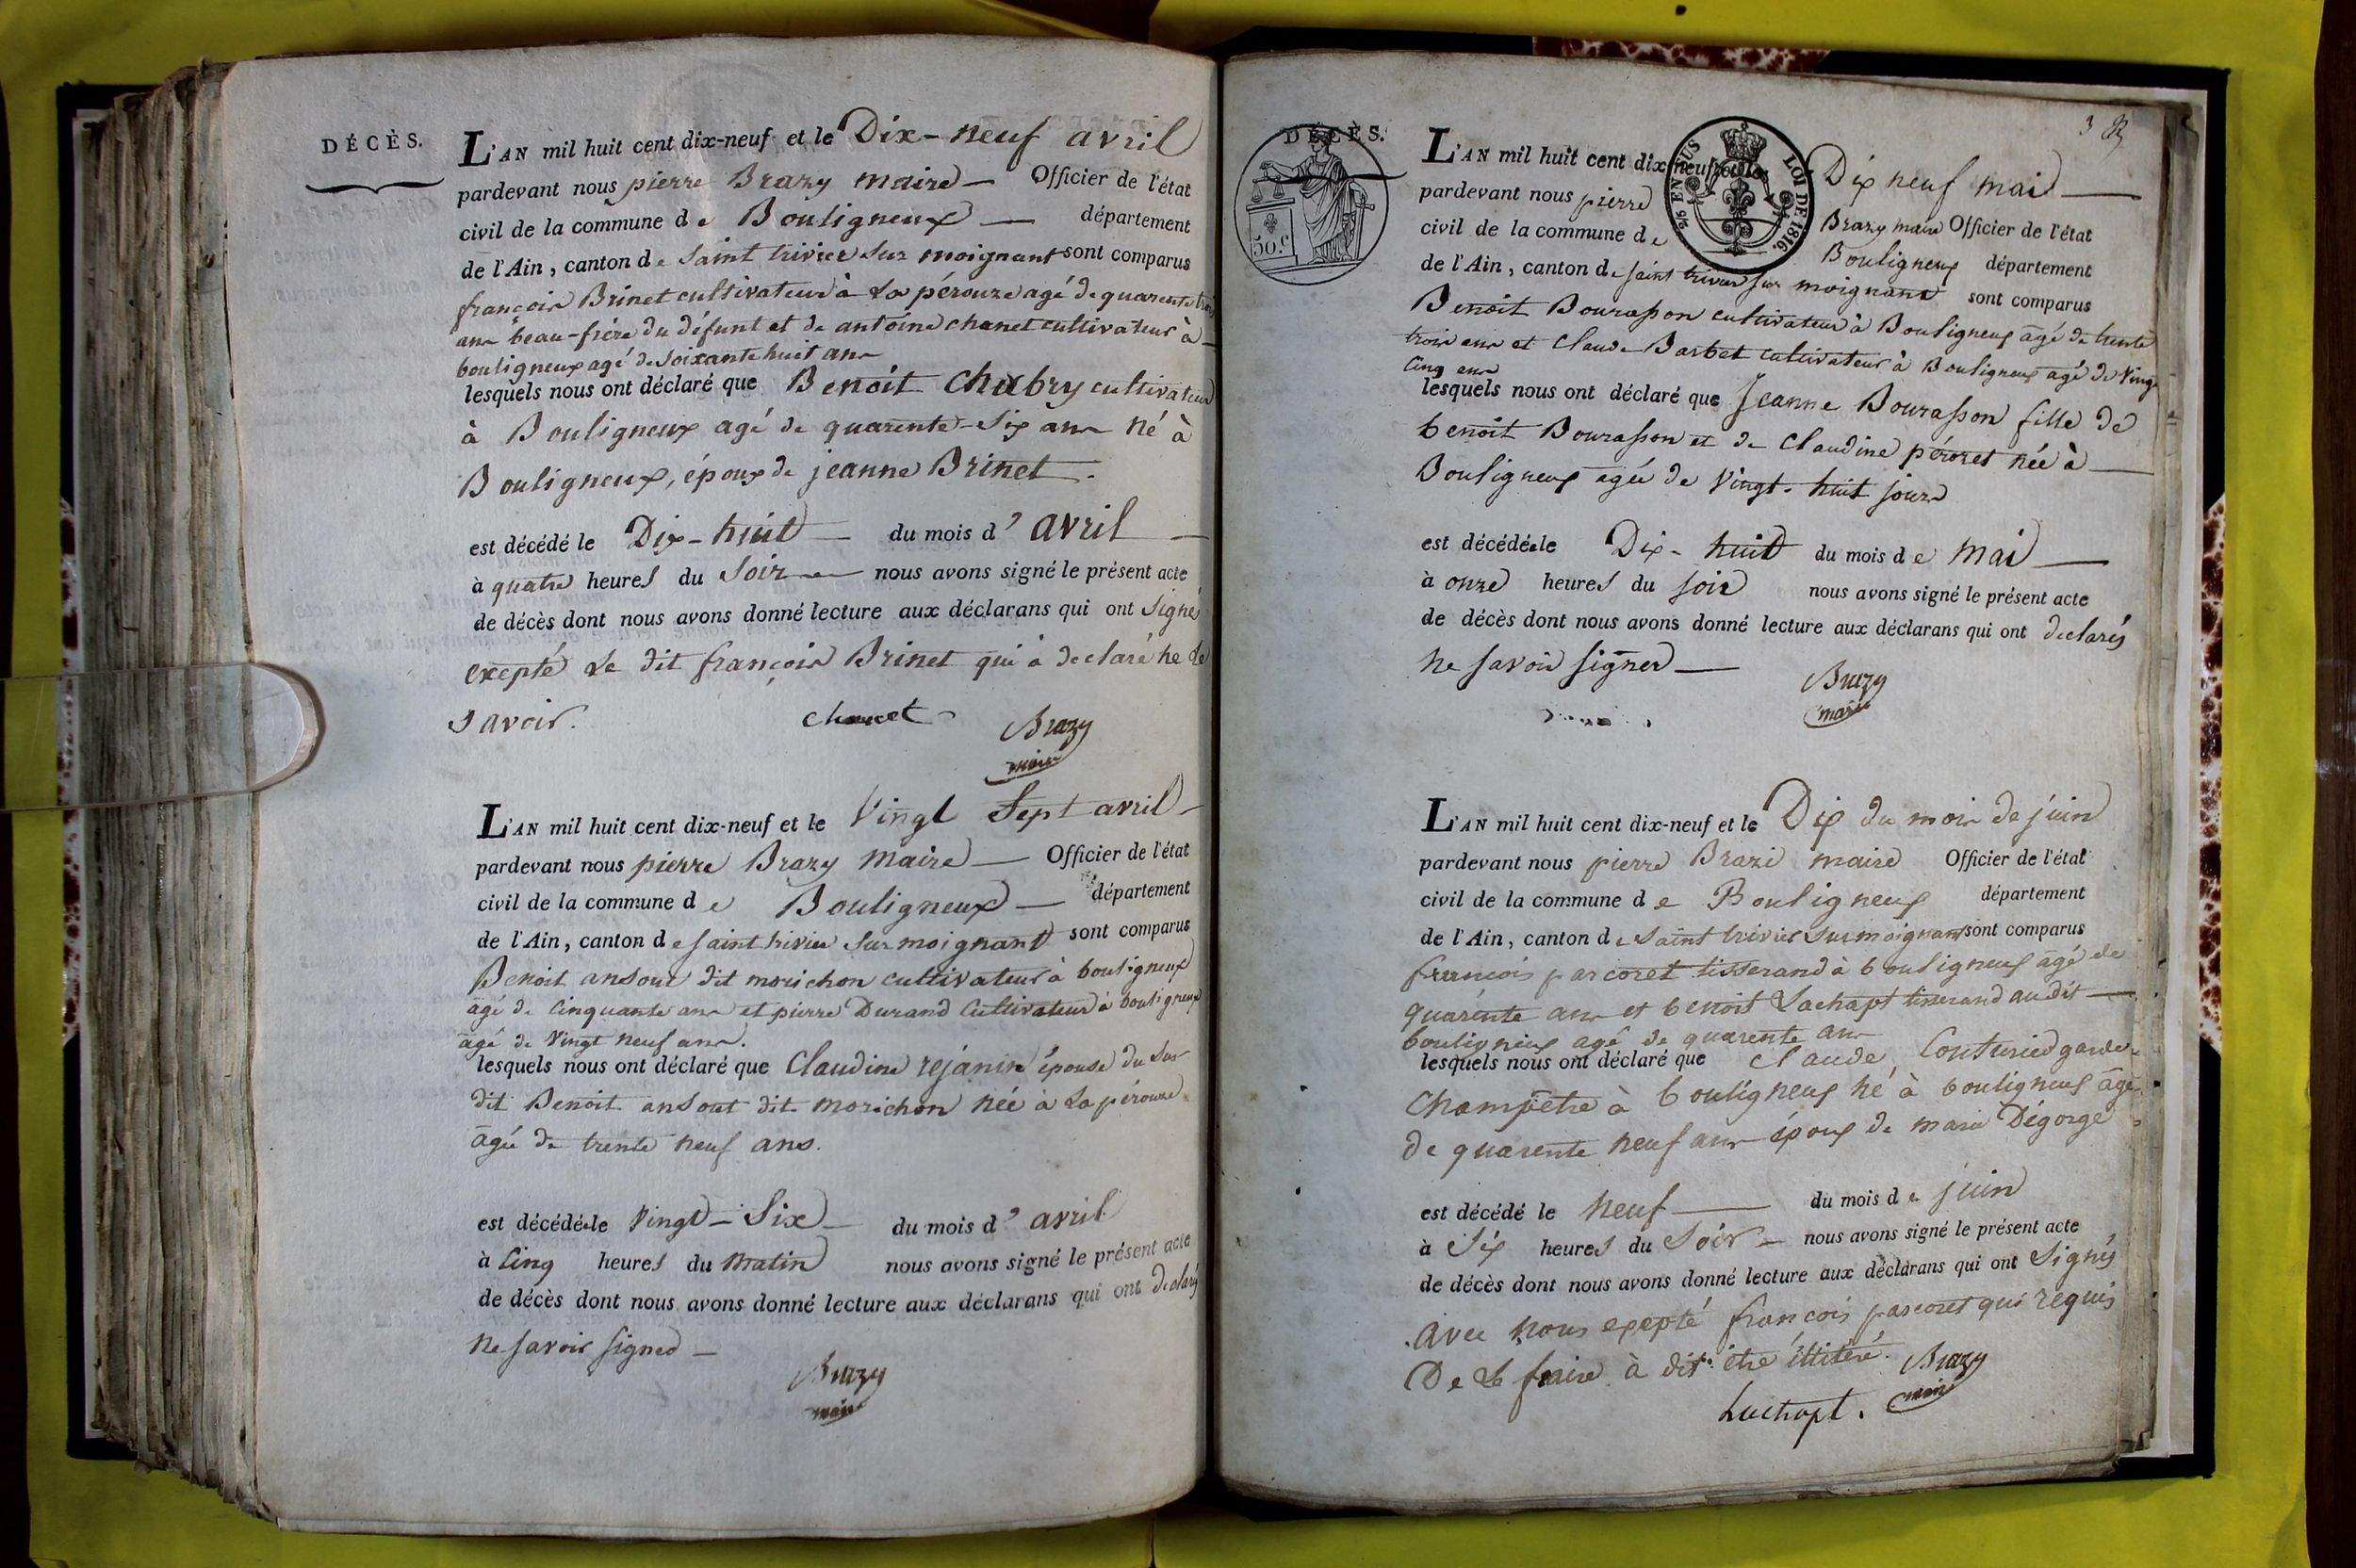 DÉCÈS.
L'AN mil huit cent dix-neuf et le Dix-neuf avril
pardevant nous pierre Brazy maire — Officier de l'état
civil de la commune de Bouligneux — département
de l'Ain, canton de Saint trivier sur moignant sont comparus
françois Brinet cultivateur à La pérouze agé de quarente trois
ans beau-frére du défunt et de antoine chanet cultivateur à
bouligneux agé de Soixante huit ans
lesquels nous ont déclaré que Benoit Chabry cultivateur
à Bouligneux agé de quarente-Six ans né à
Bouligneux, époux de jeanne Brinet.
est décédé le Dix-huit — du mois d'avril —
à quatre heures du Soir — nous avons signé le présent acte
de décès dont nous avons donné lecture aux déclarans qui ont Signés
excepté Le dit françois Brinet qui à declaré ne le
savoir. chanet Brazy
maire
L'AN mil huit cent dix-neuf et le Vingt Sept avril -
pardevant nous pierre Brazy maire — Officier de l'état
civil de la commune de Bouligneux — département
de l'Ain, canton de saint trivier sur moignant sont comparus
Benoit ansout dit morichon cultivateur à bouligneux
âgé de Cinquante ans et pierre Durand Cultivateur à bouligneux
âgé de Vingt neuf ans.
lesquels nous ont déclaré que Claudine rejanin épouse du Sus-
dit Benoit ansout dit morichon née à La pérouze
âgée de trente neuf ans.
est décédée le Vingt-Six — du mois d'avril
à Cinq heures du matin nous avons signé le présent acte
de décès dont nous avons donné lecture aux déclarans qui ont declarés
ne savoir signer —
Brazy
maire
3
DÉCÈS.
50.c
LOI DE 1816.
EN SUS
L'AN mil huit cent dix-neuf et le Dix neuf mai —
pardevant nous pierre Brazy maire Officier de l'état
civil de la commune de Bouligneux département
de l'Ain, canton de saint trivier sur moignant sont comparus
Benoit Bourasson cultivateur à Bouligneux âgé de trente
trois ans et Claude Barbet cultivateur à Bouligneux agé de Vingt
Cinq ans
lesquels nous ont déclaré que Jeanne Bourasson fille de
benoit Bourasson et de Claudine pérozet née à —
Bouligneux agée de Vingt-huit jours
est décédée le Dix-huit du mois de mai —
à onze heures du soir nous avons signé le présent acte
de décès dont nous avons donné lecture aux déclarans qui ont declarés
ne savoir signer —
Brazy
maire
L'AN mil huit cent dix-neuf et le Dix du mois de juin
pardevant nous pierre Brazi maire Officier de l'état
civil de la commune de Bouligneux département
de l'Ain, canton de Saint trivier sur moignant sont comparus
francois pascoret tisserand à bouligneux âgé de
quarente ans et benoit Lachapt tisserand audit —
bouligneux agé de quarente ans
lesquels nous ont déclaré que Claude Couturier garde
Champêtre à bouligneux né à bouligneux âgé
de quarente neuf ans époux de marie Dégorge
est décédé le neuf — du mois de juin
à Six heures du Soir — nous avons signé le présent acte
de décès dont nous avons donné lecture aux déclarans qui ont Signés
avec nous exepté francois pascoret qui requis
De le faire à dit être illitéré. Brazy
Lachapt. maire